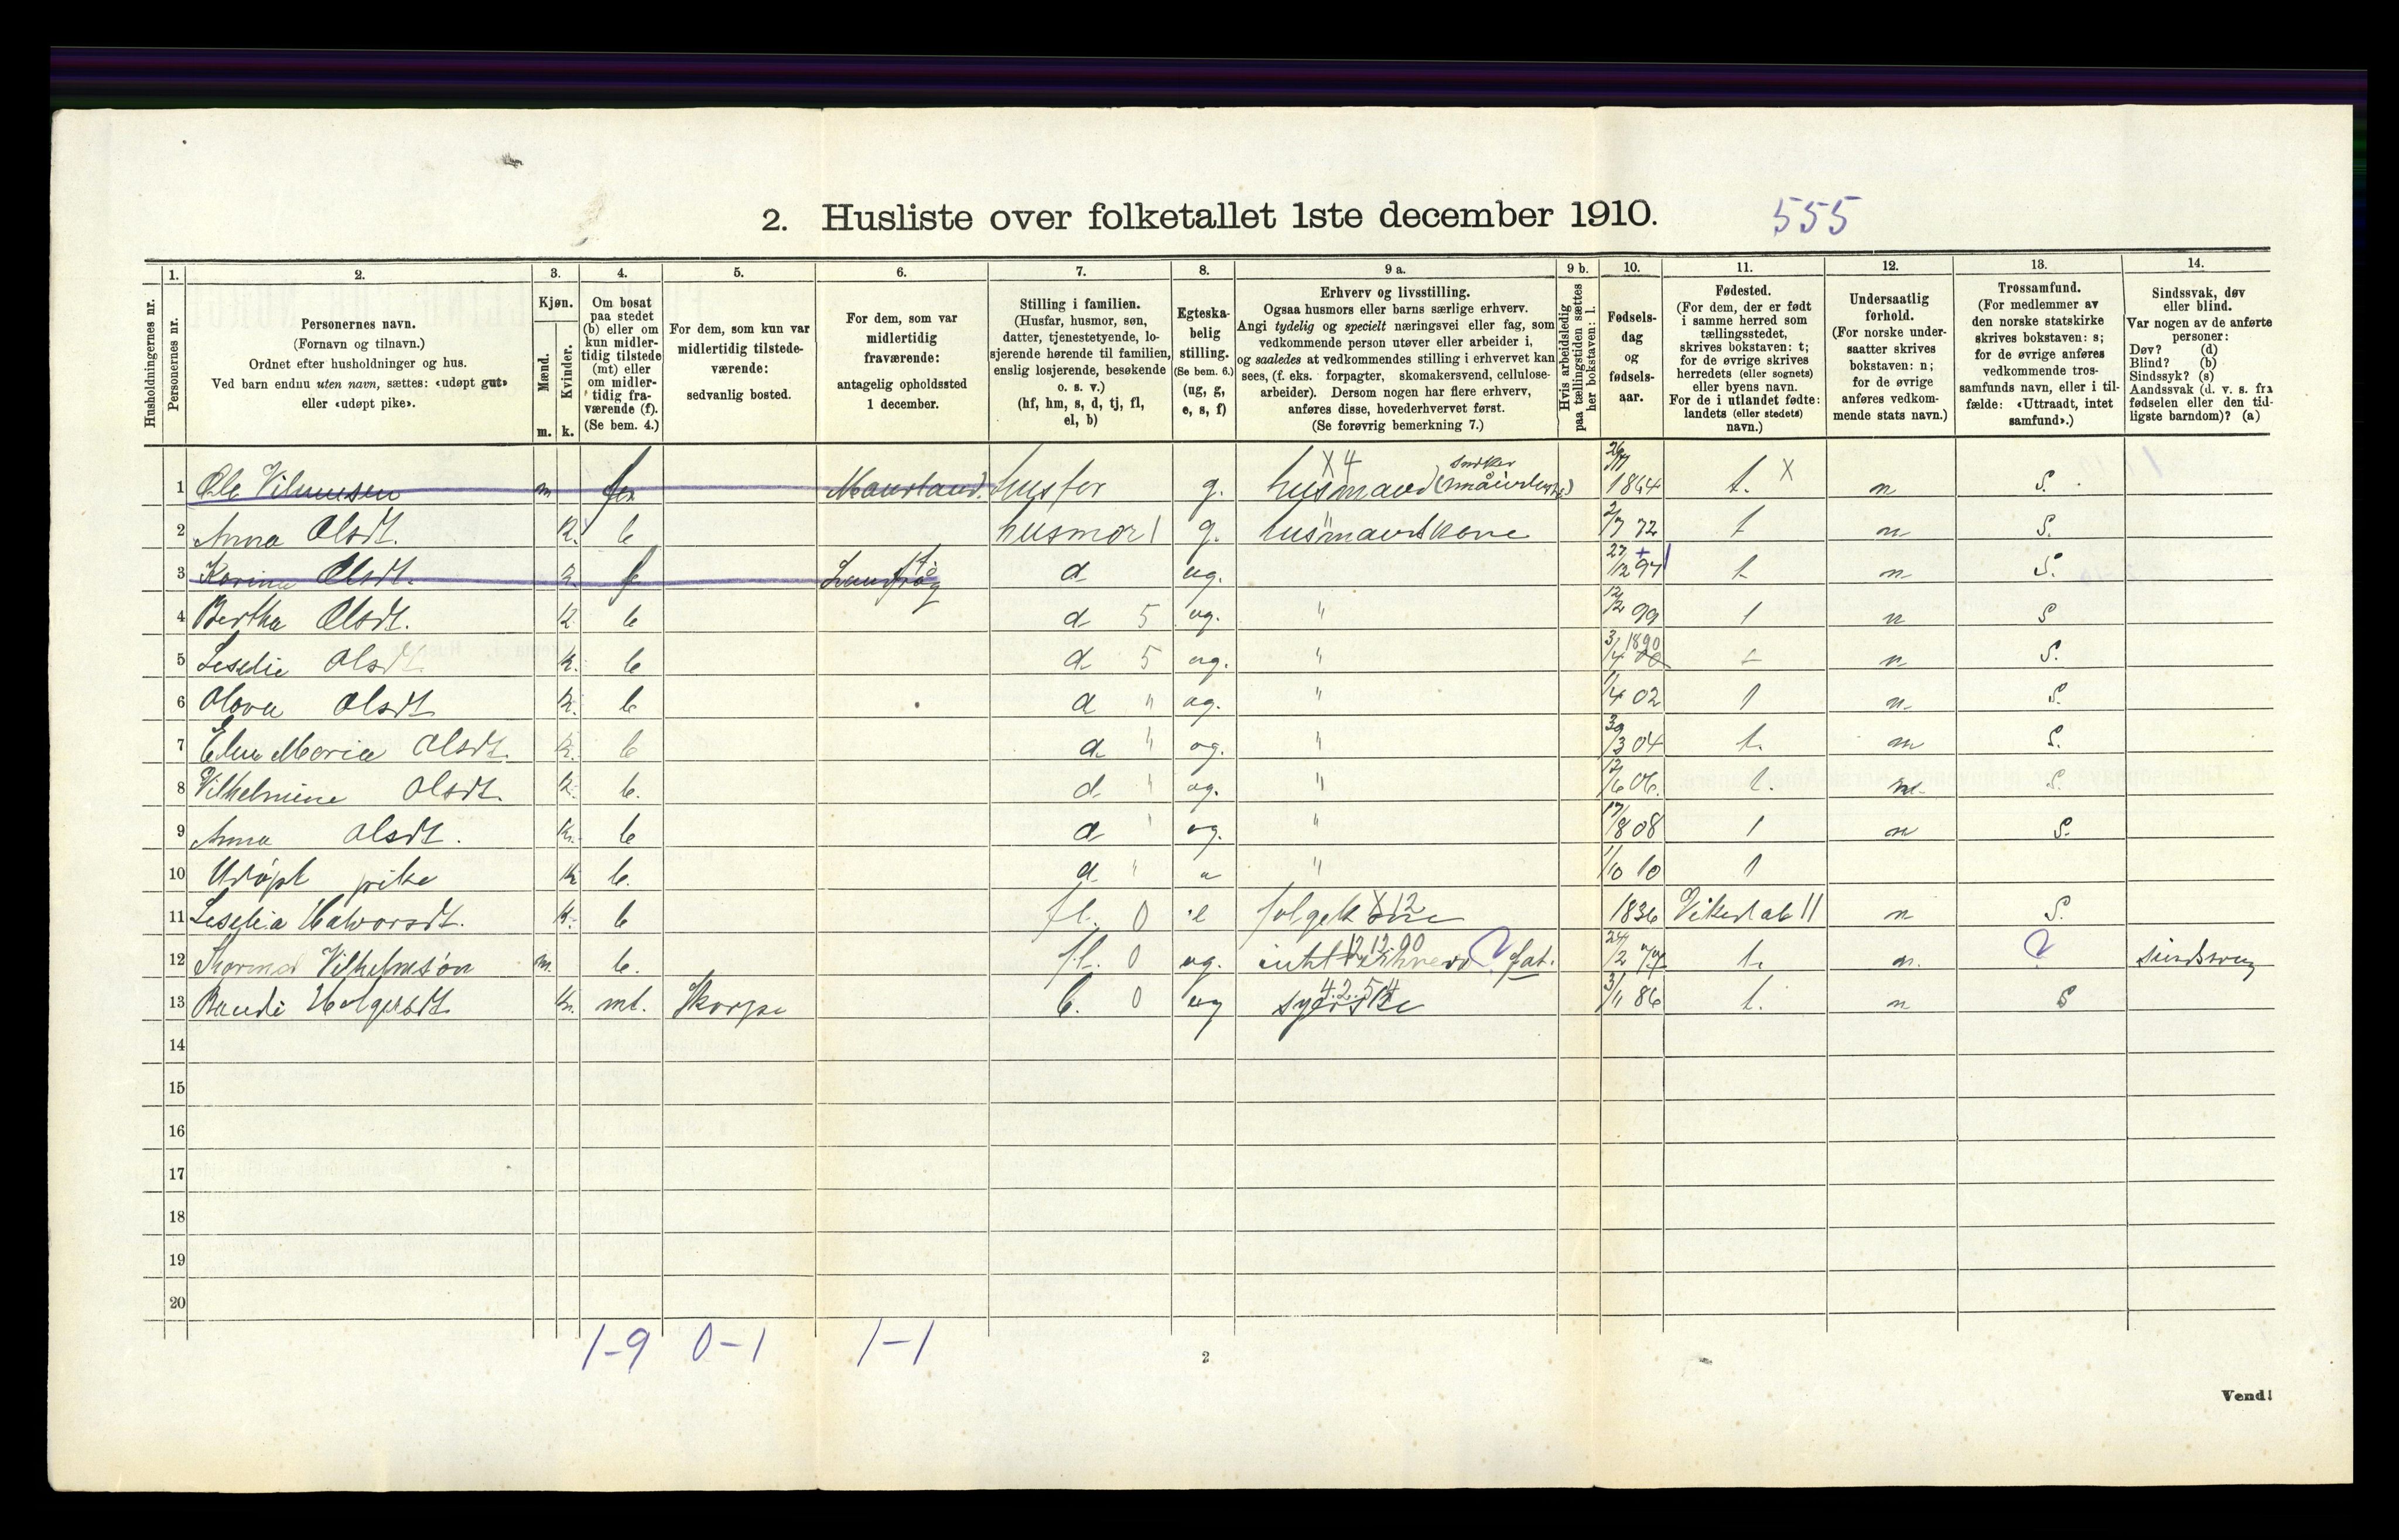 2. Husliste over folketallet 1ste december 1910. 555
1. 2. 3. 4. 5. 6. 7. 8. 9 a. 9 b. 10. 11. 12. 13. 14.
Husholdningernes nr.
Personernes nr.
Personernes navn.
(Fornavn og tilnavn.)
Ordnet efter husholdninger og hus.
Ved barn endnu uten navn, sættes: «udøpt gut»
eller «udøpt pike».
Kjøn.
Mænd.
Kvinder.
m. k.
Om bosat
paa stedet
(b) eller om
kun midler-
tidig tilstede
(mt) eller
om midler-
tidig fra-
værende (f).
(Se bem. 4.)
For dem, som kun var
midlertidig tilstede-
værende:
sedvanlig bosted.
For dem, som var
midlertidig
fraværende:
antagelig opholdssted
1 december.
Stilling i familien.
(Husfar, husmor, søn,
datter, tjenestetyende, lo-
sjerende hørende til familien,
enslig losjerende, besøkende
o. s. v.)
(hf, hm, s, d, tj, fl,
el, b)
Egteska-
belig
stilling.
(Se bem. 6.)
(ug, g,
e, s, f)
Erhverv og livsstilling.
Ogsaa husmors eller barns særlige erhverv.
Angi tydelig og specielt næringsvei eller fag, som
vedkommende person utøver eller arbeider i,
og saaledes at vedkommendes stilling i erhvervet kan
sees, (f. eks. forpagter, skomakersvend, cellulose-
arbeider). Dersom nogen har flere erhverv,
anføres disse, hovederhvervet først.
(Se forøvrig bemerkning 7.)
Hvis arbeidsledig
paa tællingstiden sættes
her bokstaven: l.
Fødsels-
dag
og
fødsels-
aar.
Fødested.
(For dem, der er født
i samme herred som
tællingsstedet,
skrives bokstaven: t;
for de øvrige skrives
herredets (eller sognets)
eller byens navn.
For de i utlandet fødte:
landets (eller stedets)
navn.)
Undersaatlig
forhold.
(For norske under-
saatter skrives
bokstaven: n;
for de øvrige
anføres vedkom-
mende stats navn.)
Trossamfund.
(For medlemmer av
den norske statskirke
skrives bokstaven: s;
for de øvrige anføres
vedkommende tros-
samfunds navn, eller i til-
fælde: «Uttraadt, intet
samfund».)
Sindssvak, døv
eller blind.
Var nogen av de anførte
personer:
Døv? (d)
Blind? (b)
Sindssyk? (s)
Aandssvak (d. v. s. fra
fødselen eller den tid-
ligste barndom)? (a)
1 Ole m husfar g. husmand X 4 1864 t. X n S.
2 Anna Olsdt. K. b husmor g. husmandskone 2/7 72 t n S.
3 Karina Olsdt. K. f d ug. 27/12 97 t n S.
4 Bertha Olsdt. K b d 5 ug. " 12/2 99 t n S
5 Olsdt K. b d 5 ug. " 3/4 1890 t n S.
6 Olava Olsdt K. b d " ug. " 1/4 02 t n S.
7 Maria Olsdt. K. b d " ug. " 30/3 04 t. n S.
8 Vilhelmine Olsdt. K. b. d " ug. " 12/6 06. t. n S.
9 Anna Olsdt. K. b d " ug. " 17/8 08 t n S.
10 Udøpt pike K b. d " " 1/10 10 t
11 Halvorsdt. K. b fl. 0 e folgekone X 12 1836 Vikedal 11 n S.
12 Vilhelmsøn m. b. fl. 0 ug. intet erhverv 12.12.00 ? fat. 24/2 77 t. n. ?
13 Holgersdt. K. mt. Skorpe b. 0 ug syerske 4.2.5 3/11 86 t. n S
14
15
16
17
18
19
20
1-9 0-1 1-1
2
Vend!